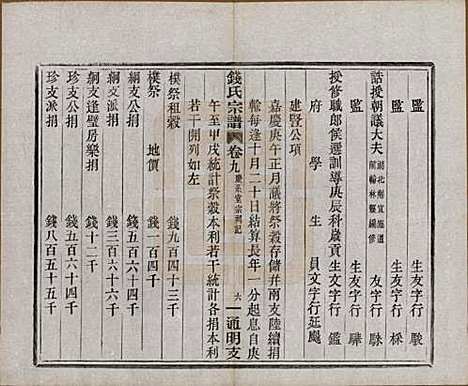 監 生友字行騣
監 生友字行棎
誥授朝議大夫 湖北荊宜施道前翰林院編修 友字行騄
監 生友字行驊
授修職郎候選訓導庚辰科歲貢生文字行鑑
府學生員文字行延颺
建賢公項
嘉慶庚午正月議將祭穀存儲并兩支陸續捐
輸每逢十月二十日結算長年一分起息自庚
午至甲戌統計祭穀本利若干統計各捐本利
若干開列如左
錢氏宗譜 卷九 慶系堂宗祠記 六 通明支
樸祭租穀 錢九百四十三千
樸祭 地價 錢一百四千
綱支公捐 錢五百六十四千
綱支派捐 錢三百六十六千
綱支逢璧房樂捐 錢十二千
珍支公捐 錢五百十六千
珍支派捐 錢八百五十五千